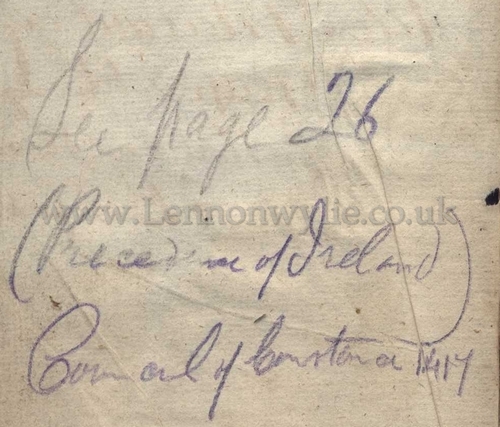 See page 26
www.Lennonwylie.co.uk
(Precedence of Ireland)
Council of Constance 1417